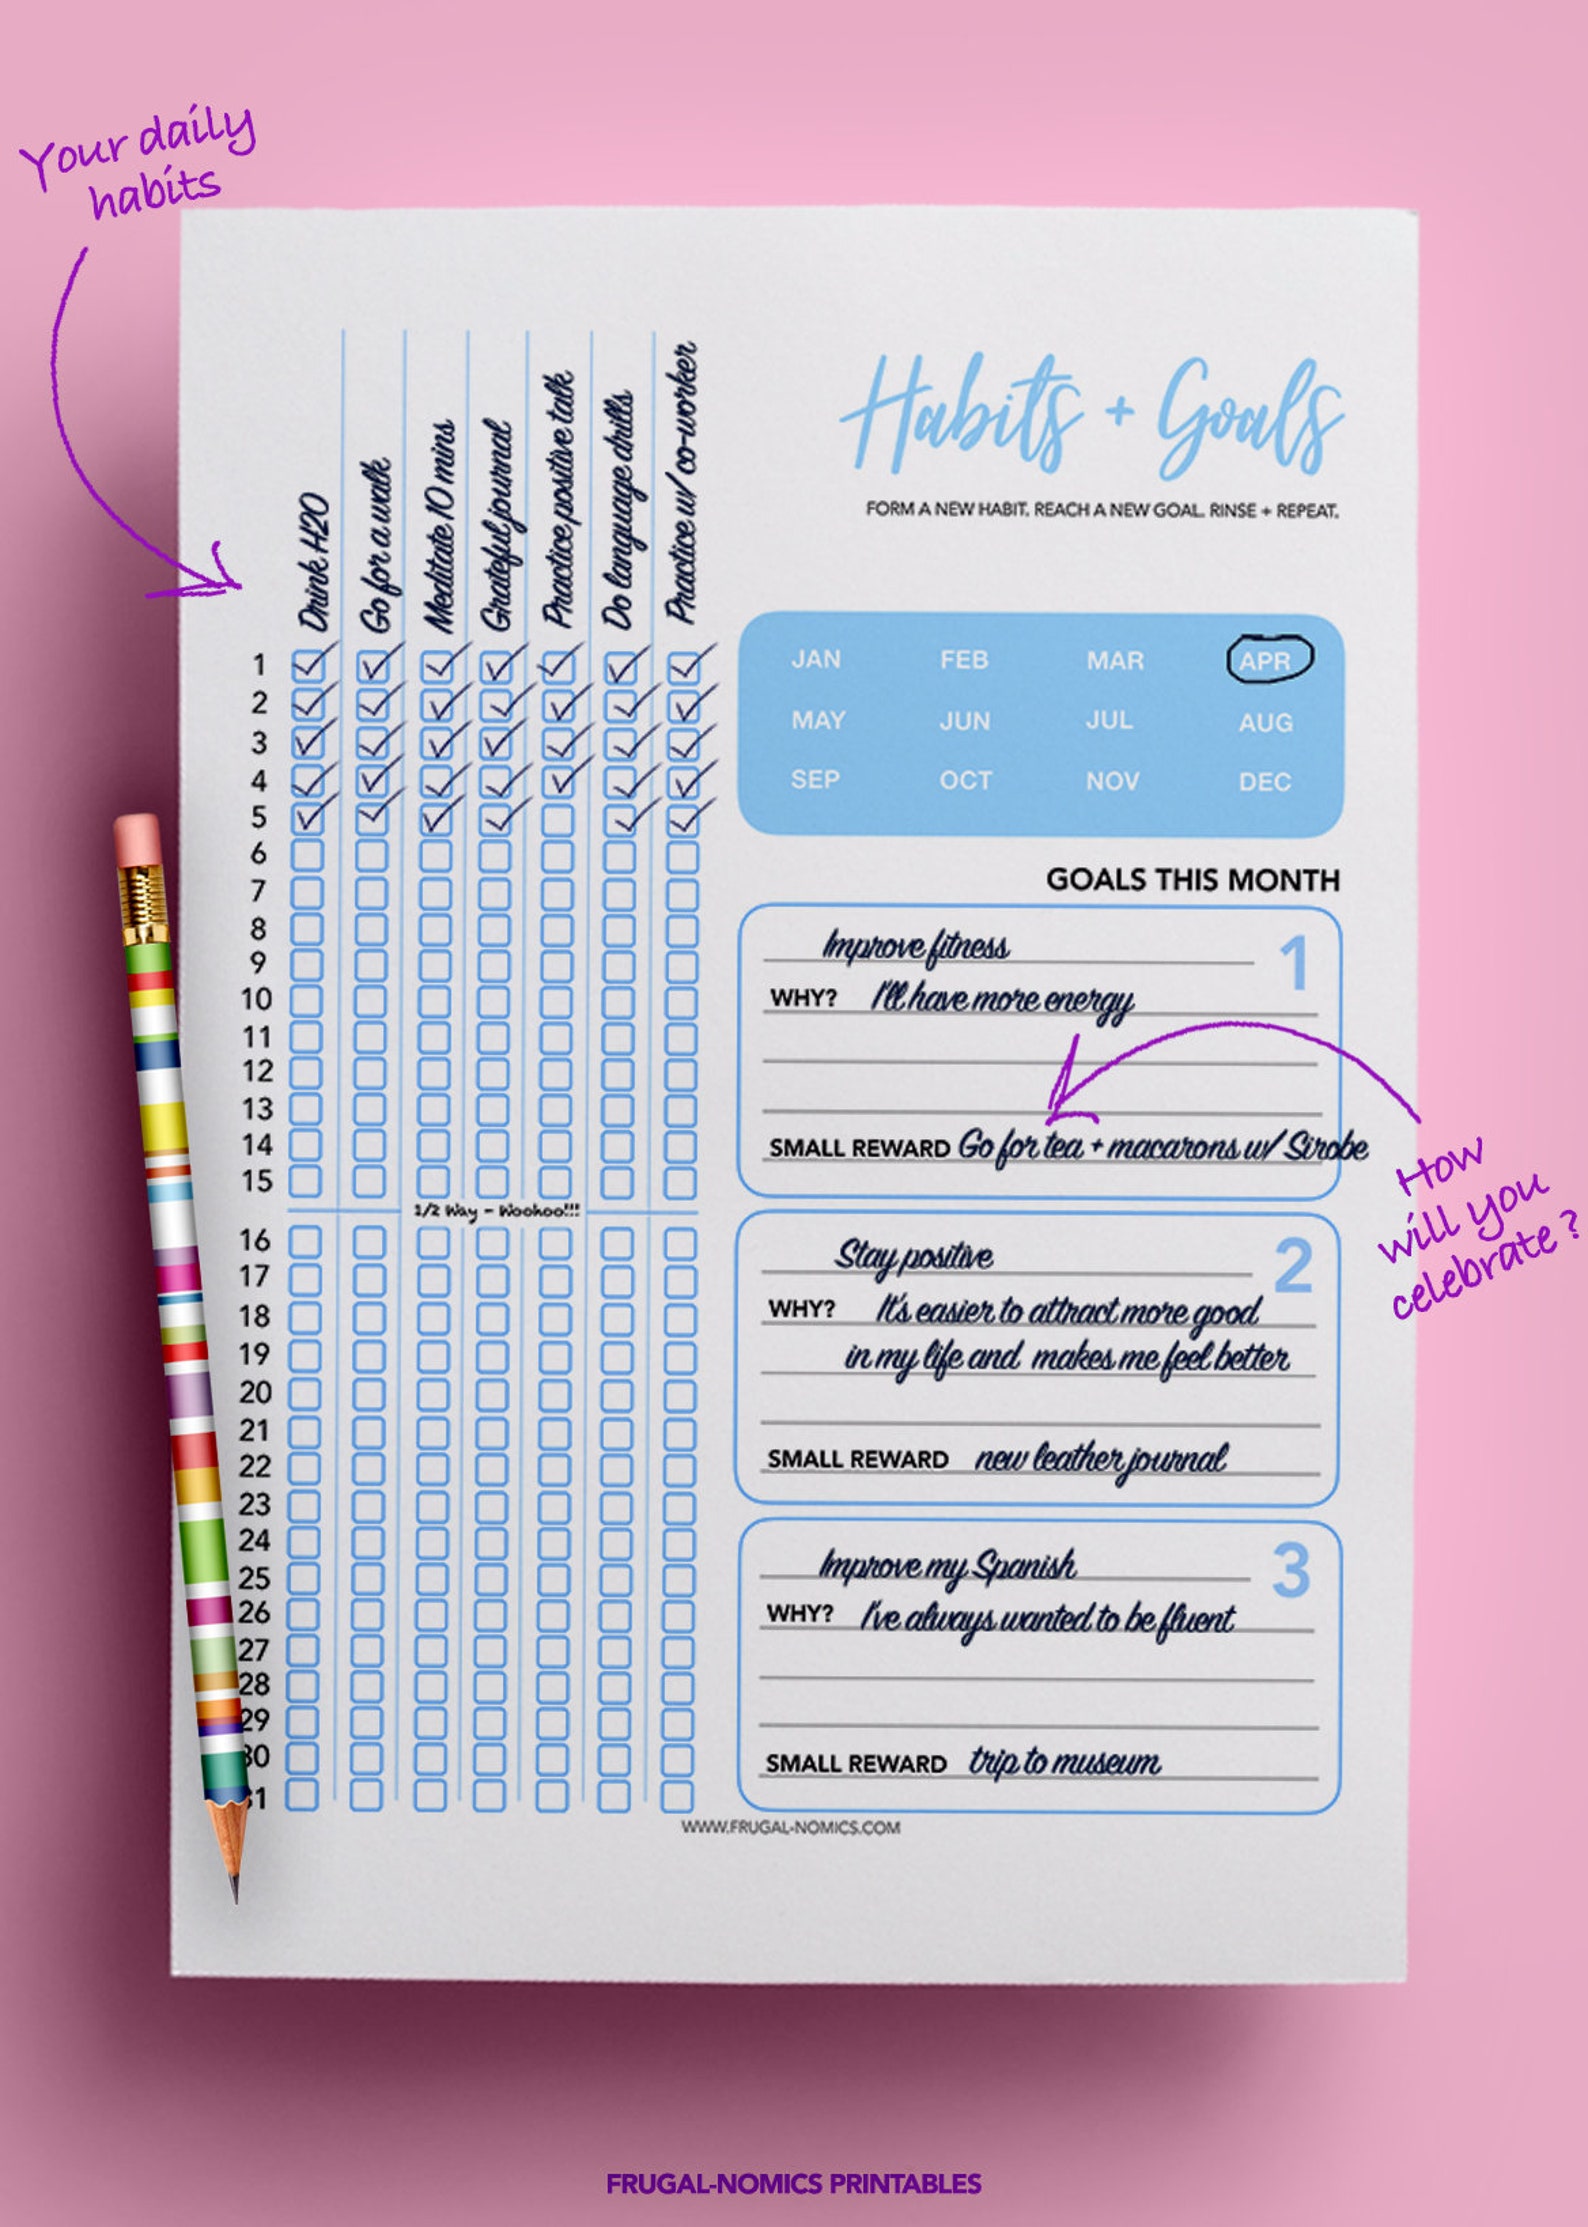 Your daily
habits
Drink H20
Go for a walk
Meditate 10 mins
Grateful journal
Practice positive talk
Do language drills
Practice w/ co-worker
Habits + Goals
FORM A NEW HABIT. REACH A NEW GOAL. RINSE + REPEAT.
JAN FEB MAR APR
MAY JUN JUL AUG
SEP OCT NOV DEC
1
2
3
4
5
6
7
8
9
10
11
12
13
14
15
1/2 Way - Woohoo!!!
16
17
18
19
20
21
22
23
24
25
26
27
28
29
30
31
GOALS THIS MONTH
Improve fitness 1
WHY? I'll have more energy
SMALL REWARD Go for tea + macarons w/ Sirobe
How
will you
celebrate?
Stay positive 2
WHY? It's easier to attract more good
in my life and makes me feel better
SMALL REWARD new leather journal
Improve my Spanish 3
WHY? I've always wanted to be fluent
SMALL REWARD trip to museum
WWW.FRUGAL-NOMICS.COM
FRUGAL-NOMICS PRINTABLES